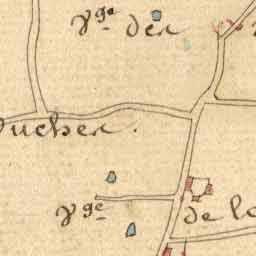 Vge. des
ucher.
Vge
de la